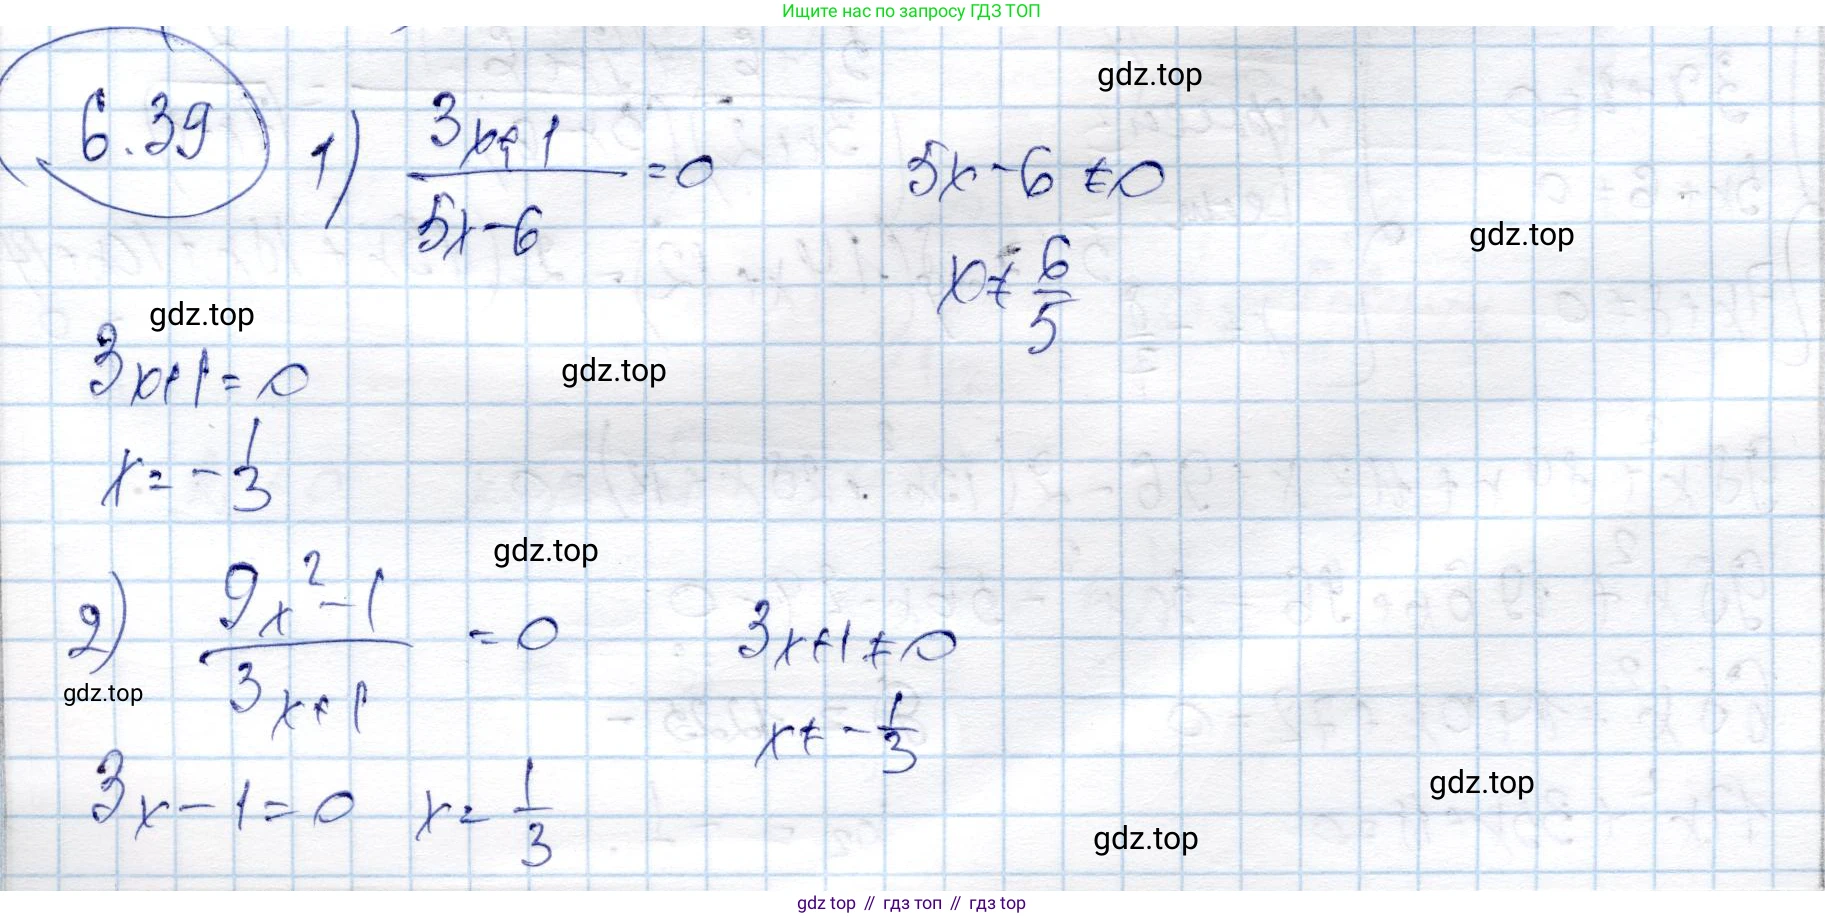 Ищите нас по запросу ГДЗ ТОП
gdz.top
6.39 1) (3x+1)/(5x-6) = 0 5x-6 ≠ 0
x ≠ 6/5
gdz.top
gdz.top
3x+1=0
gdz.top
x = -1/3
gdz.top
2) (9x²-1)/(3x+1) = 0 3x+1 ≠ 0
gdz.top
x ≠ -1/3
3x-1=0 x = 1/3
gdz.top
gdz.top
gdz top // гдз топ // гдз top